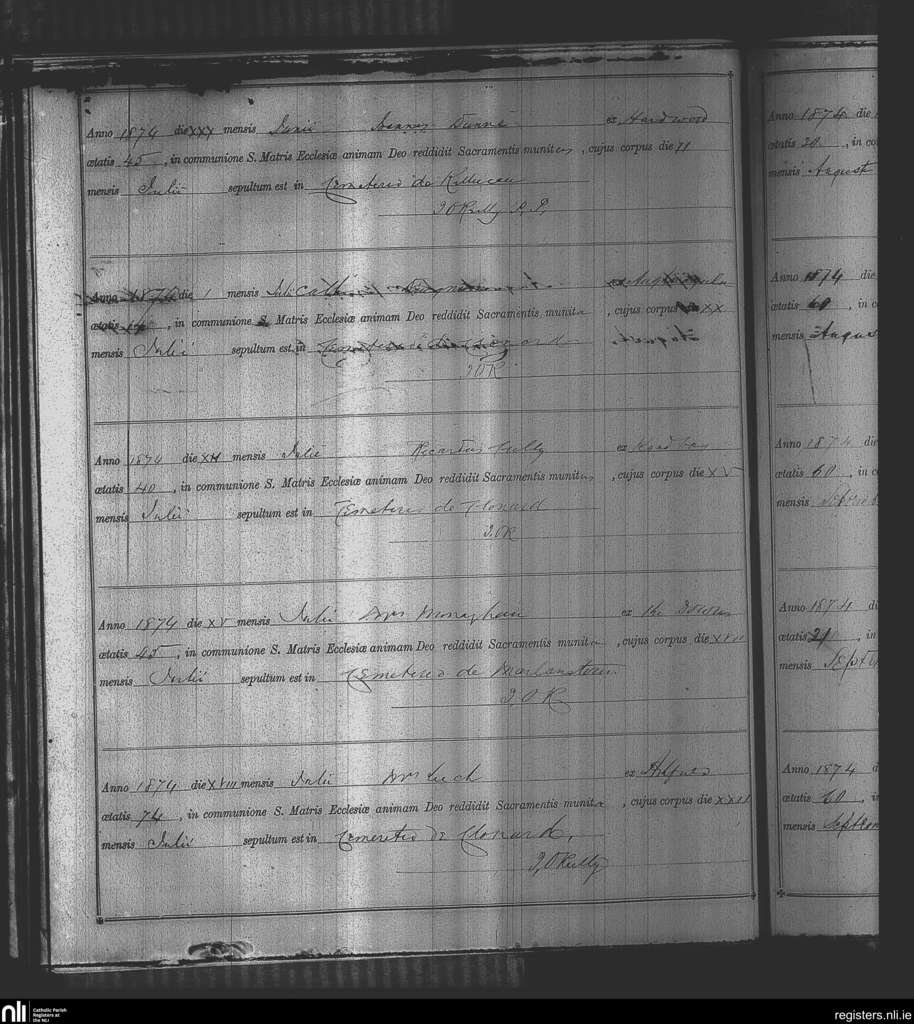 Anno 1874 die XXX mensis Junii Joannes Dunne ex Hardwood
ætatis 45, in communione S. Matris Ecclesiæ animam Deo reddidit Sacramentis munitus, cujus corpus die II
mensis Julii sepultum est in Cemeterio de Killucan
J O'Reilly P. P.
Anno 1874 die 1 mensis Julii
ætatis, in communione S. Matris Ecclesiæ animam Deo reddidit Sacramentis munita, cujus corpus XX
mensis Julii sepultum est in Cemeterio de Clonard August
J O R
Anno 1874 die XII mensis Julii Ricardus Cully ex
ætatis 40, in communione S. Matris Ecclesiæ animam Deo reddidit Sacramentis munitus, cujus corpus die XV
mensis Julii sepultum est in Cemeterio de Clonard
J. O R
Anno 1874 die XV mensis Julii Mrs Monaghan ex the Downs
ætatis 45, in communione S. Matris Ecclesiæ animam Deo reddidit Sacramentis munita, cujus corpus die XVII
mensis Julii sepultum est in Cemeterio de
J, O R
Anno 1874 die XVIII mensis Julii Mrs Leech ex
ætatis 74, in communione S. Matris Ecclesiæ animam Deo reddidit Sacramentis munita, cujus corpus die XXII
mensis Julii sepultum est in Cemeterio de Clonard,
J, O'Reilly
Anno 1874 die
ætatis 20, in
mensis August
Anno 1874 die
ætatis 60, in
mensis
Anno 1874 die
ætatis 60, in
mensis
Anno 1874 di
ætatis, in
mensis Sept
Anno 1874
ætatis 60, in
mensis
nli
Catholic Parish
Registers at
the NLI
registers.nli.ie